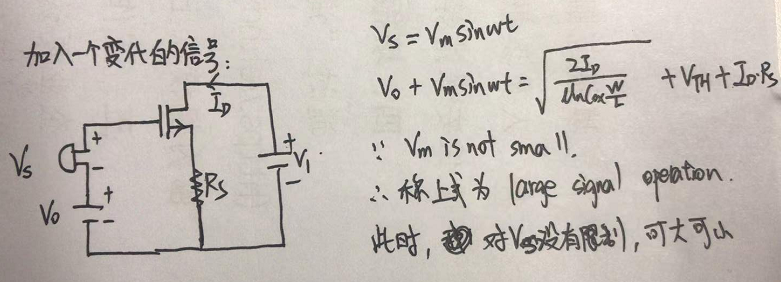 加入一个变化的信号:
I_D
V_s
+
-
V_0
+
-
R_S
+
V_1
-
V_s = V_m sinωt
V_0 + V_m sinωt = √(2I_D / (μnCox W/L)) + V_TH + I_D·R_S
∵ V_m is not small.
∴ 称上式为 large signal operation.
此时, 对V_s没有限制, 可大可小